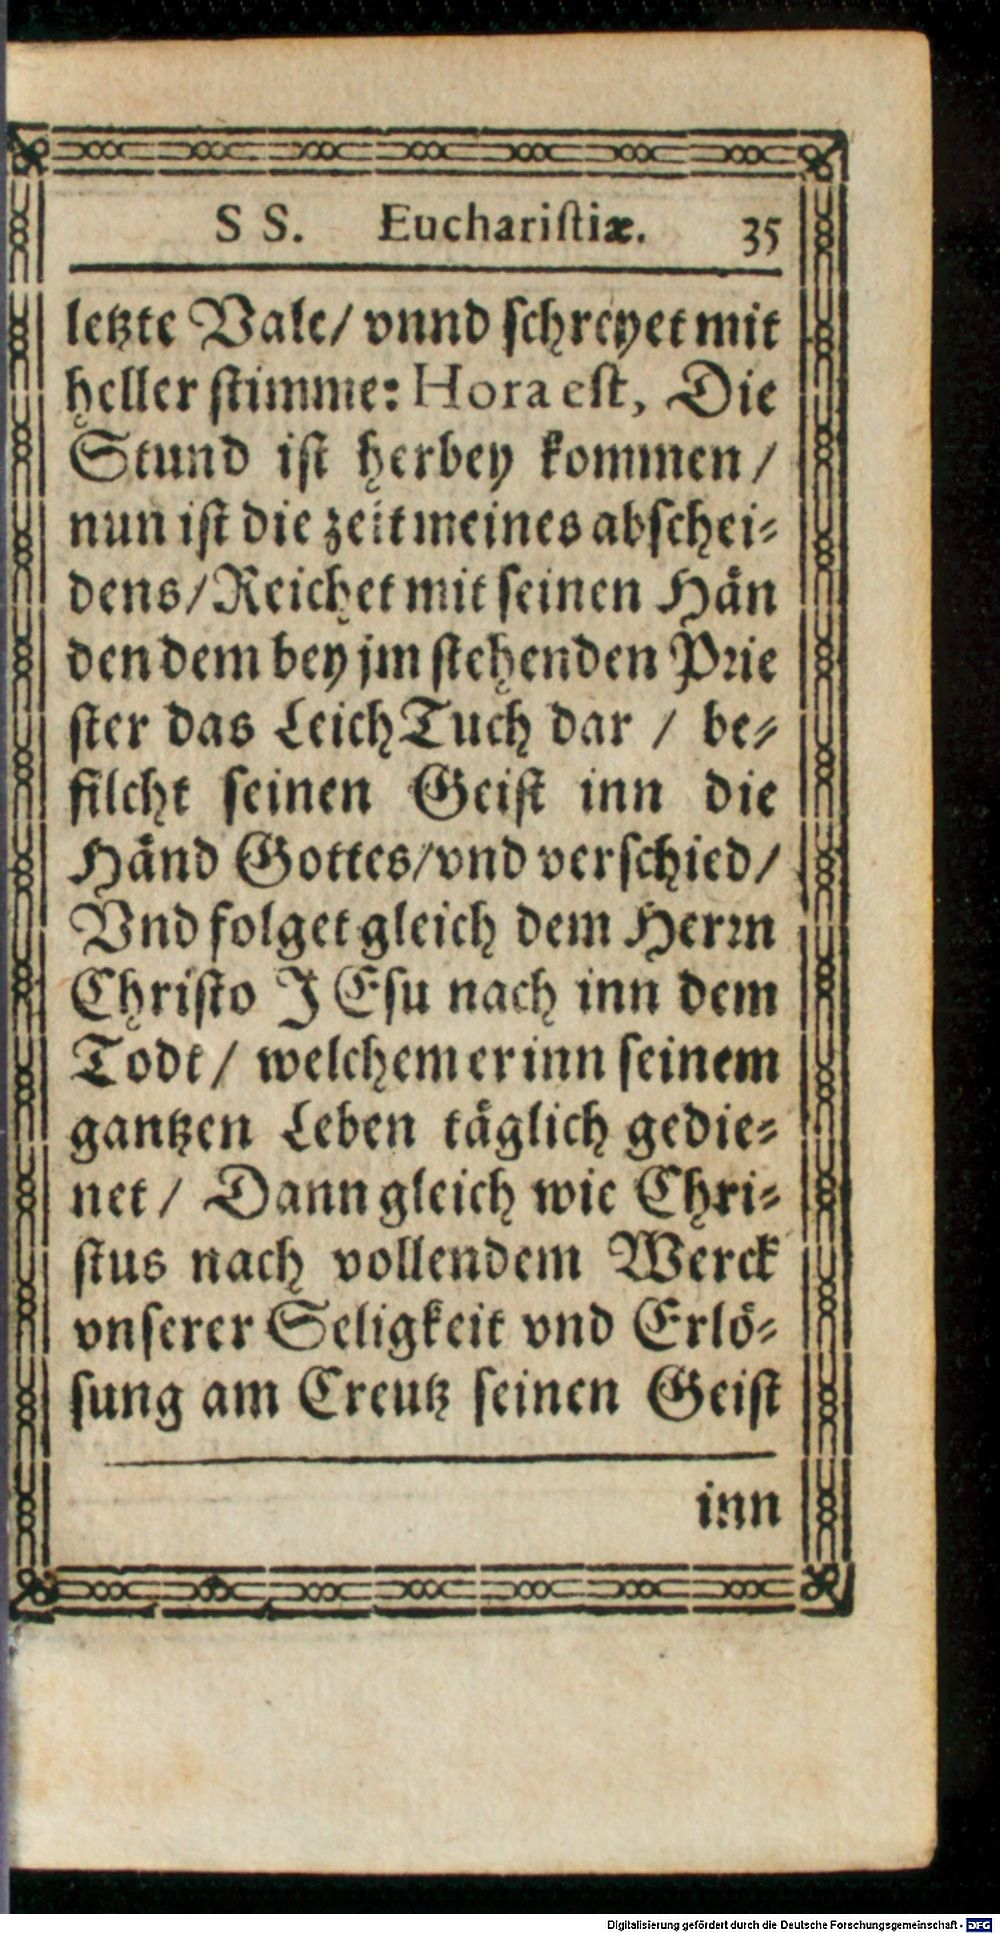 SS. Euchariſtiæ. 35
letzte Vale/ vnnd ſchreyet mit
heller ſtimme: Hora eſt, Die
Stund iſt herbey kommen /
nun iſt die zeit meines abſchei-
dens/ Reichet mit ſeinen Hän
den dem bey jm ſtehenden Prie
ſter das LeichTuch dar / be-
filcht ſeinen Geiſt inn die
Händ Gottes/ vnd verſchied/
Vnd folget gleich dem Herꝛn
Chriſto JEſu nach inn dem
Todt / welchem er inn ſeinem
gantzen Leben täglich gedie-
net / Dann gleich wie Chri-
ſtus nach vollendem Werck
vnſerer Seligkeit vnd Erlö-
ſung am Creutz ſeinen Geiſt
inn
Digitalisierung gefördert durch die Deutsche Forschungsgemeinschaft - DFG